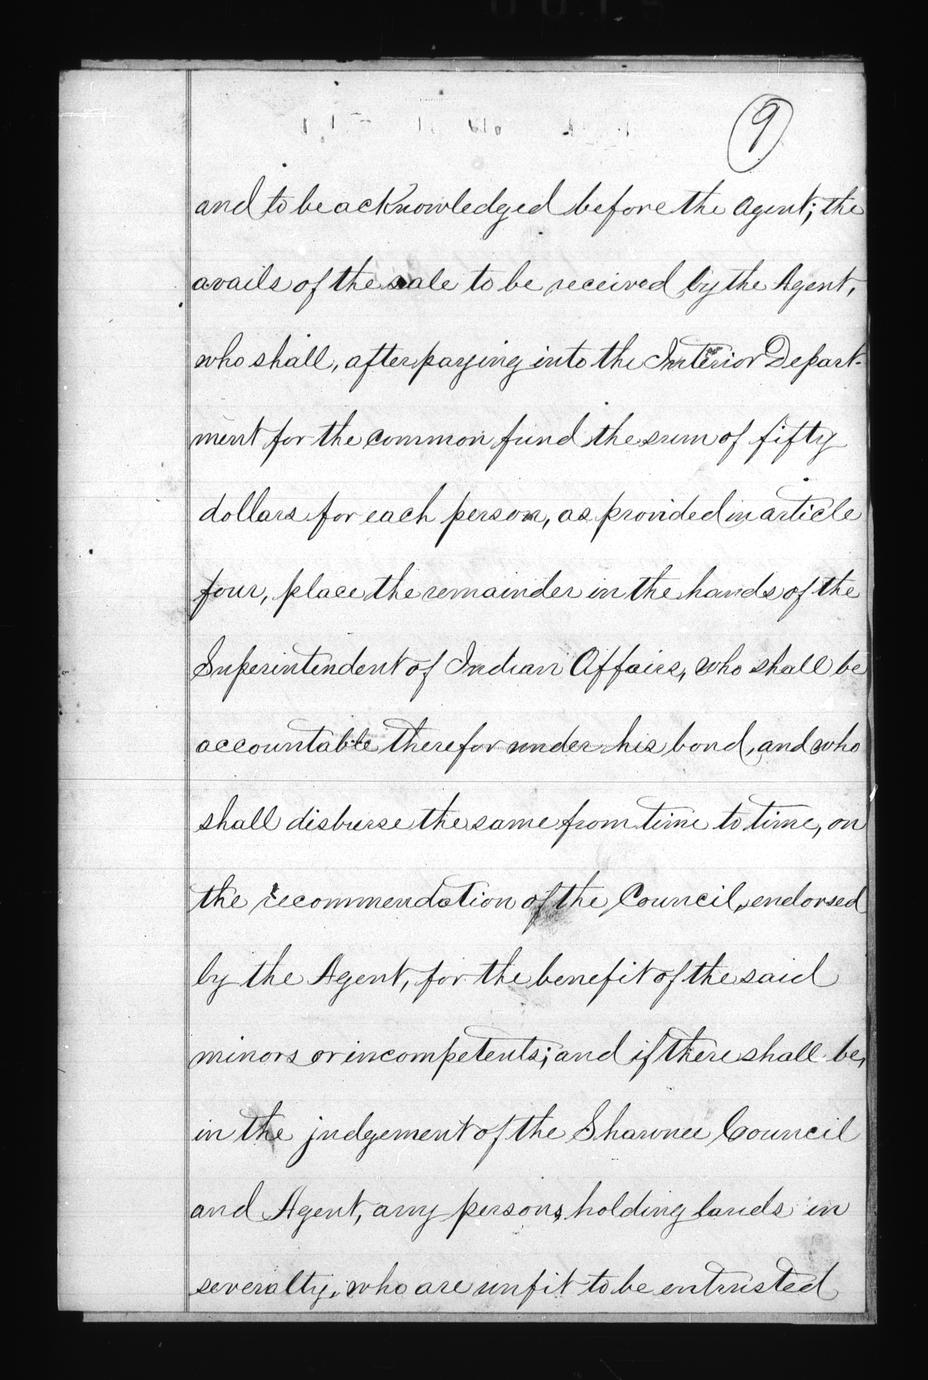 9
and to be acknowledged before the Agent; the
avails of the sale to be received by the Agent,
who shall, after paying into the Interior Depart-
ment for the common fund the sum of fifty
dollars for each person, as provided in article
four, place the remainder in the hands of the
Superintendent of Indian Affairs, who shall be
accountable therefor under his bond, and who
shall disburse the same from time to time, on
the recommendation of the Council, endorsed
by the Agent, for the benefit of the said
minors or incompetents; and if there shall be,
in the judgement of the Shawnee Council
and Agent, any persons holding lands in
severalty, who are unfit to be entrusted